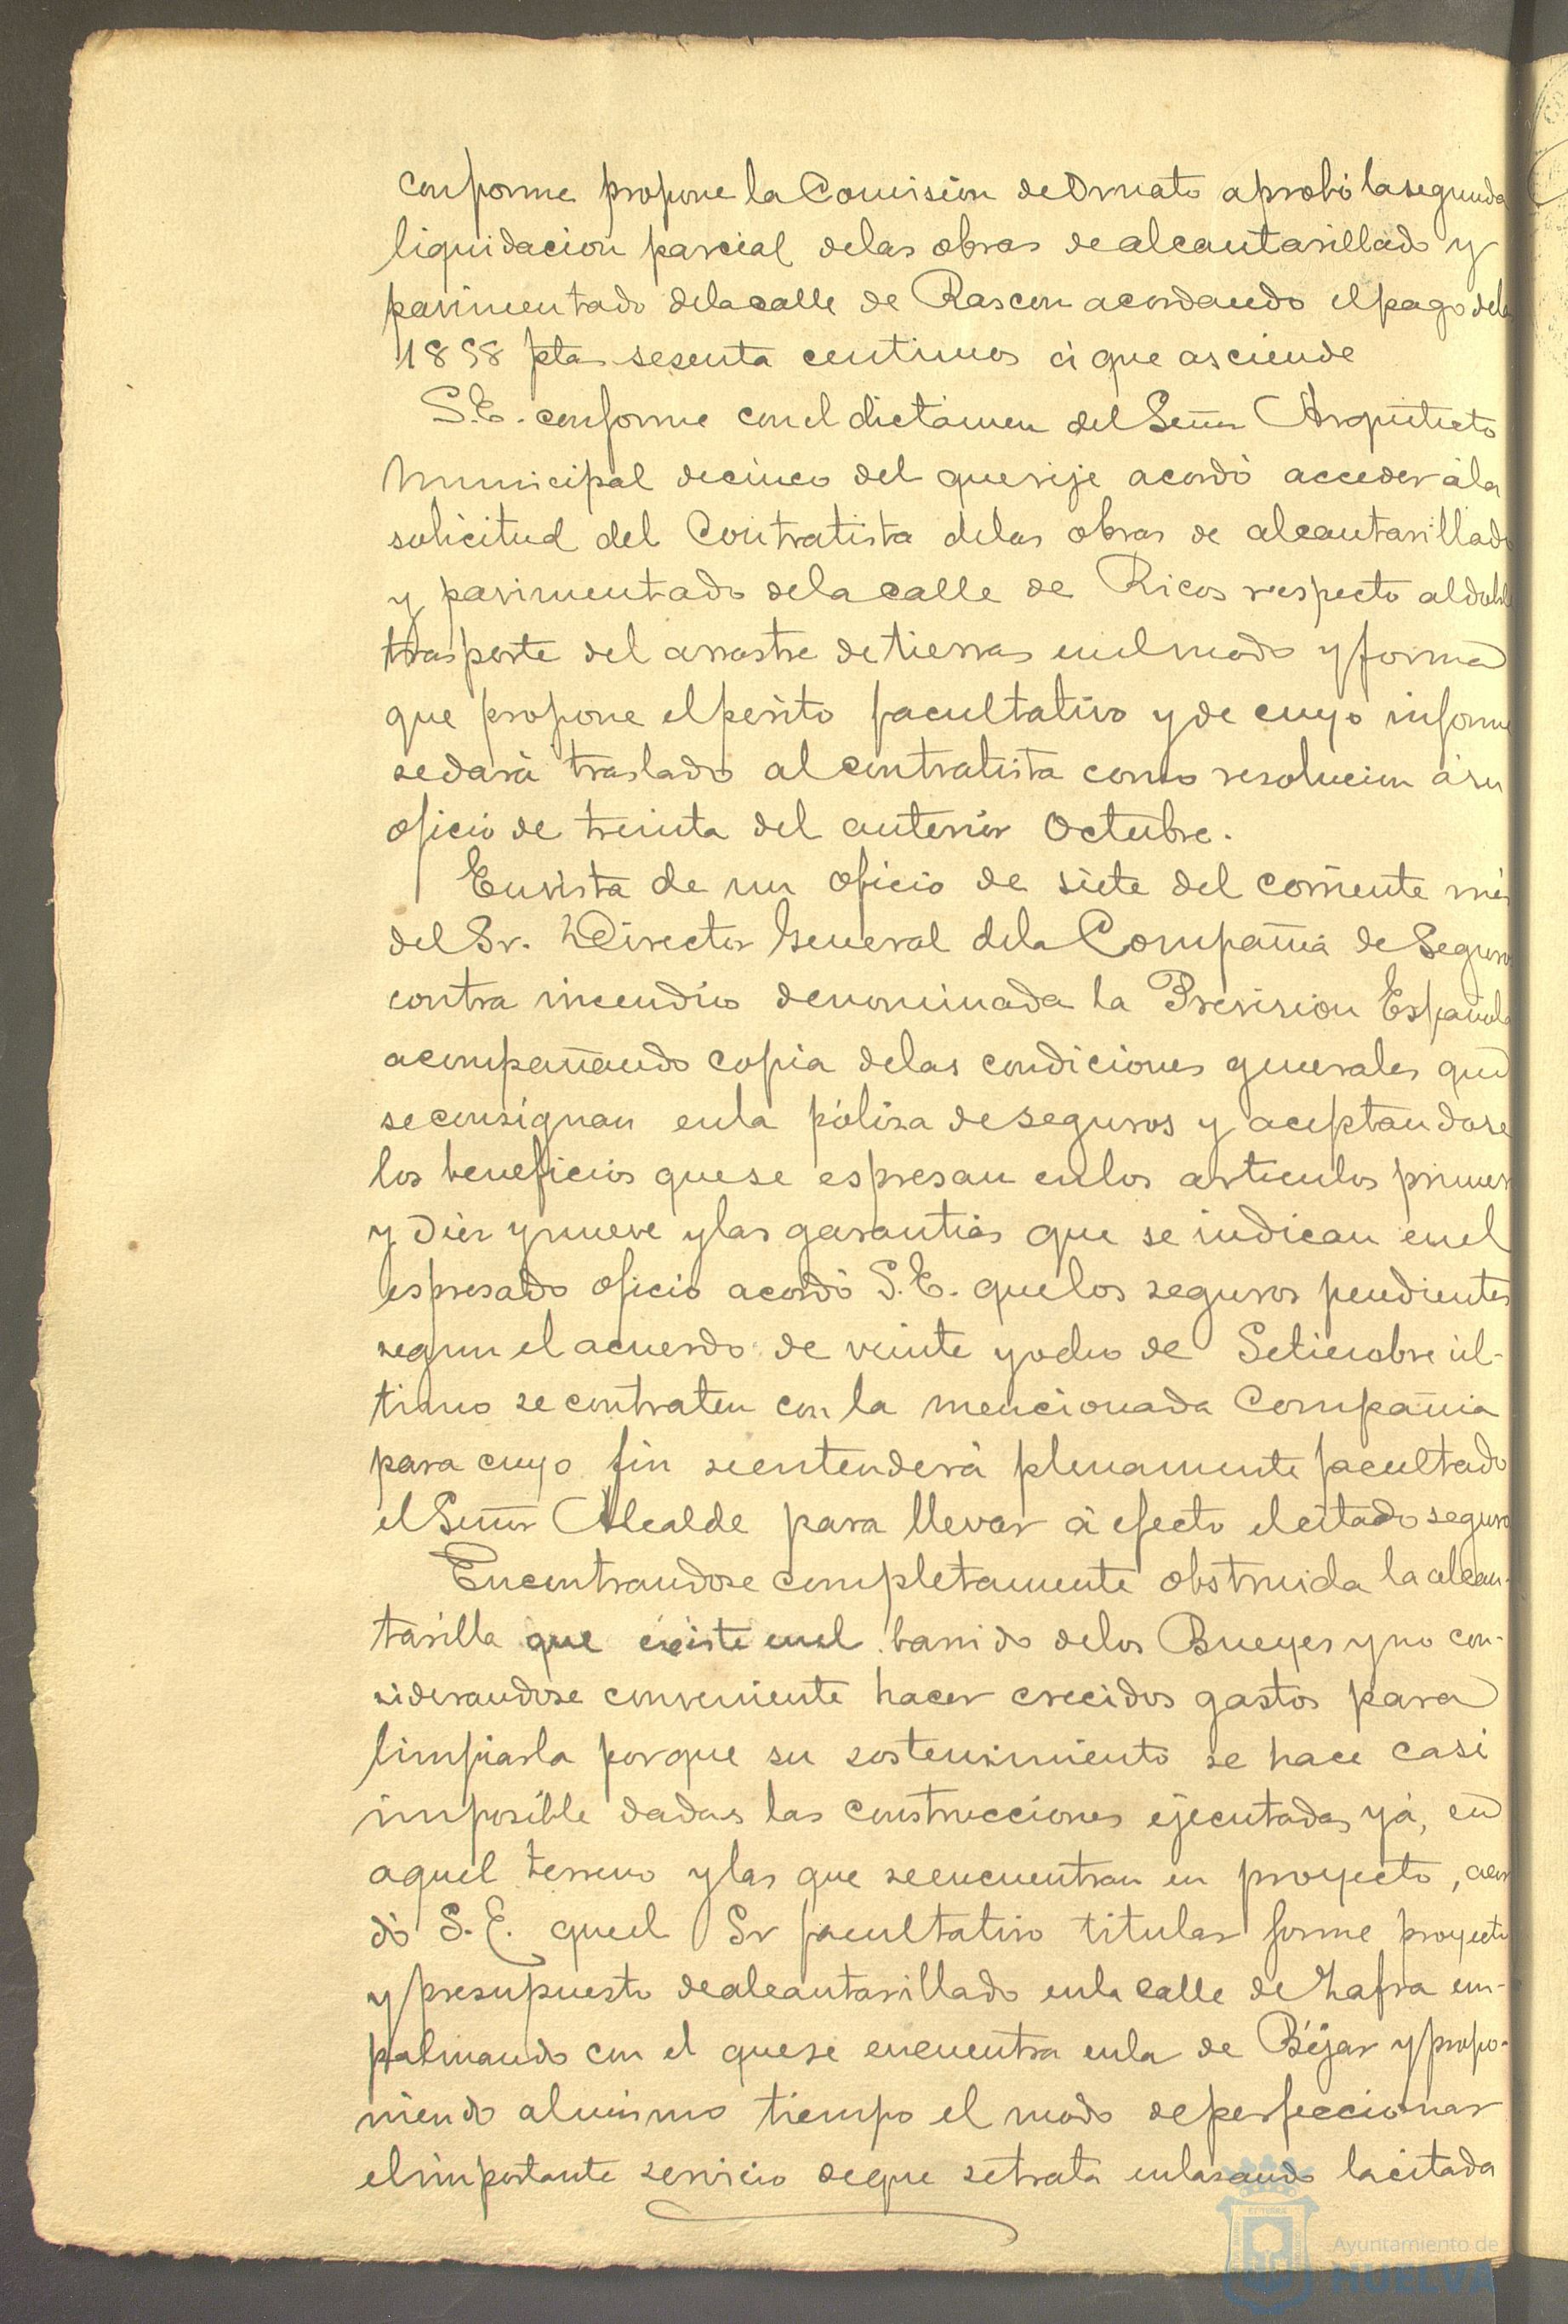 conforme propone la Comisión de Ornato aprobó la segunda
liquidacion parcial de las obras de alcantarillado y
pavimentado de la calle de Rascon acordando el pago de la
1898 ptas sesenta centimos á que asciende
S.E. conforme con el dictamen del Señor Arquitecto
Municipal de cinco del que rije acordó acceder á la
solicitud del Contratista de las obras de alcantarillado
y pavimentado de la calle de Ricos respecto al doble
trasporte del arrastre de tierras en el modo y forma
que propone el perito facultativo y de cuyo informe
se dará traslado al contratista como resolucion á su
oficio de treinta del anterior Octubre.
En vista de un oficio de siete del corriente mes
del Sr. Director General de la Compañia de Seguros
contra incendios denominada la Prevision Española
acompañando copia de las condiciones generales que
se consignan en la póliza de seguros y aceptandose
los beneficios que se espresan en los articulos primero
y diez y nueve y las garantias que se indican en el
espresado oficio acordó S.E. que los seguros pendientes
segun el acuerdo de veinte y ocho de Setiembre úl-
timo se contraten con la mencionada Compañia
para cuyo fin se entenderá plenamente facultado
el Señor Alcalde para llevar á efecto el citado seguro
Encontrandose completamente obstruida la alcan-
tarilla que existe en el barrido de los Bueyes y no con-
siderandose conveniente hacer crecidos gastos para
limpiarla porque su sostenimiento se hace casi
imposible dadas las construcciones ejecutadas yá, en
aquel terreno y las que se encuentran en proyecto, acor
dó S.E. que el Sr facultativo titular forme proyecto
y presupuesto de alcantarillado en la calle de Zafra em-
palmando con el que se encuentra en la de Béjar y propo-
niendo al mismo tiempo el modo de perfeccionar
el importante servicio de que se trata enlazando la citada
Ayuntamiento de
HUELVA